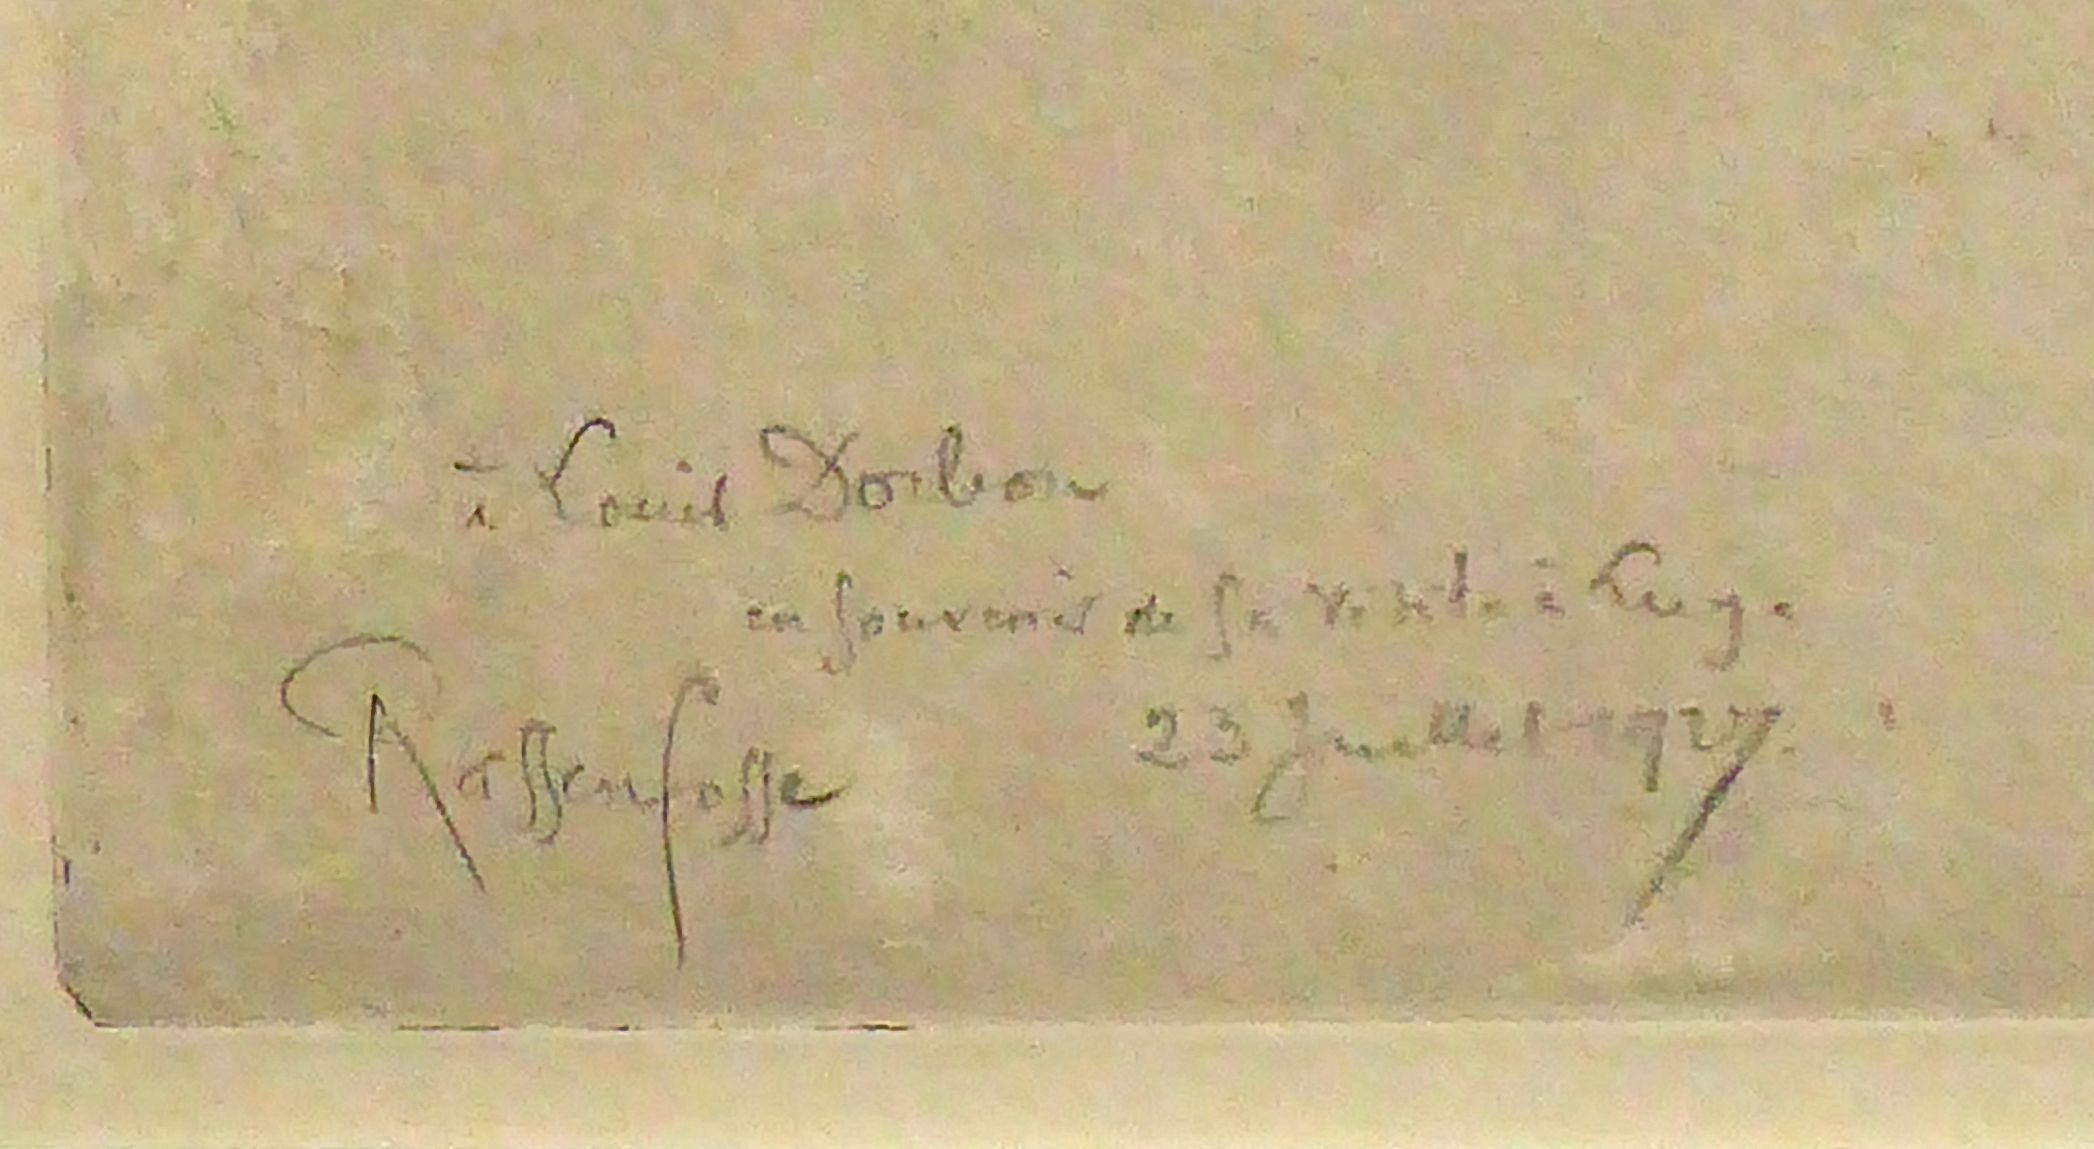 à Louis Dorbon
en souvenir de sa visite à Liége.
Rassenfosse
23 Juillet 1927.